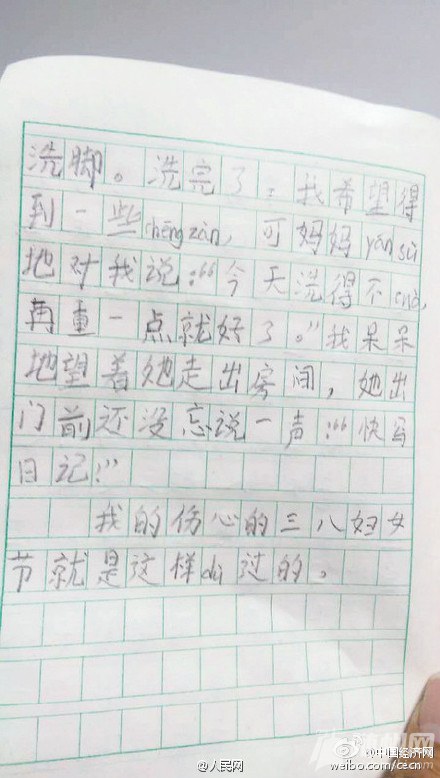 洗脚。洗完了，我希望得
到一些chēng zàn，可妈妈yán sù
地对我说：“今天洗得不cuò，
再重一点就好了。”我呆呆
地望着她走出房间，她出
门前还没忘说一声：“快写
日记！”
我的伤心的三八妇女
节就是这样dù过的。
@人民网
@中国经济网
weibo.com/cecn